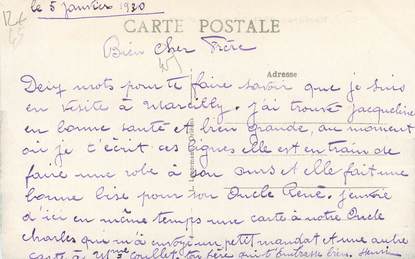 le 5 Janvier 1930
CARTE POSTALE
Bien cher Frère
Adresse
Deux mots pour te faire savoir que je suis
en visite à Marcilly. j'ai trouvé jacqueline
en bonne santé et bien grande, au moment
où je t'écrit ces lignes elle est en train de
faire une robe à son ours et elle fait une
bonne bise pour son Oncle René. j'envoie
d'ici en même temps une carte à notre Oncle
charles qui m'a envoyé un petit mandat et une autre
carte à Mme ton frère qui t'Embrasse bien. Henri